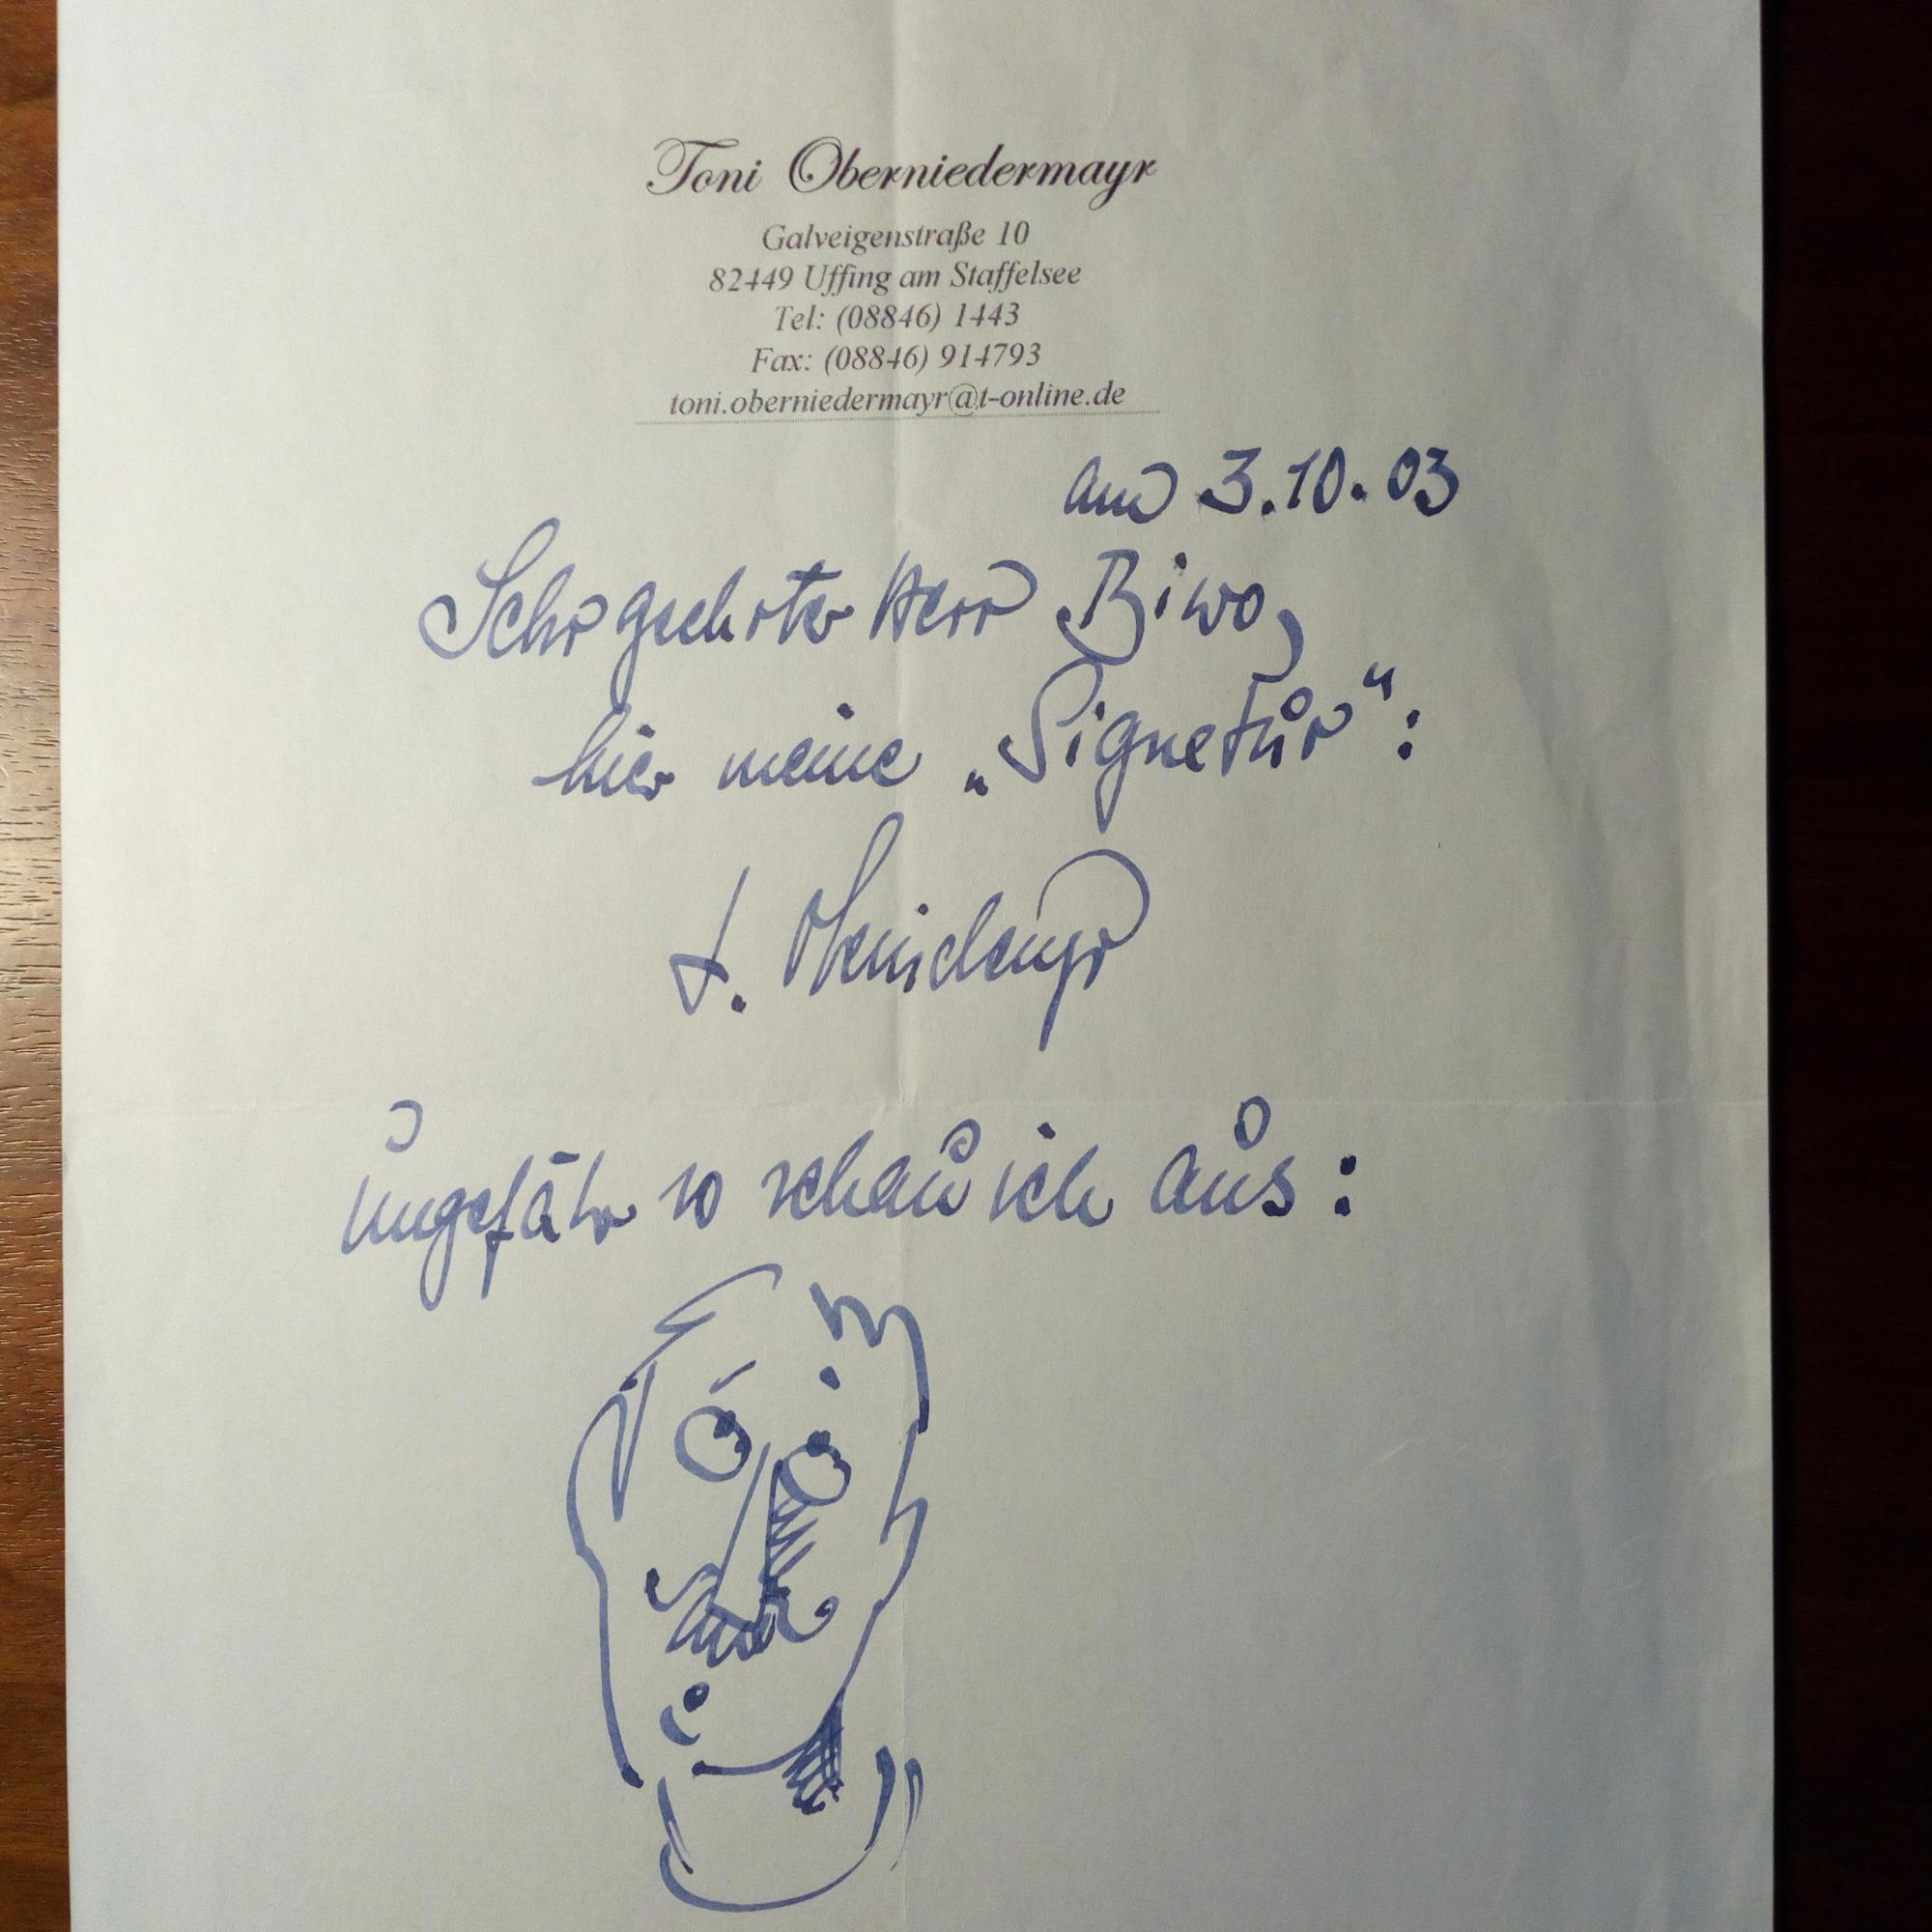 Toni Oberniedermayr
Galveigenstraße 10
82449 Uffing am Staffelsee
Tel: (08846) 1443
Fax: (08846) 914793
toni.oberniedermayr@t-online.de
am 3.10.03
Sehr geehrter Herr Biwo,
hier meine „Signetur“:
T. Oberniedermayr
Ungefähr so schau ich aus: